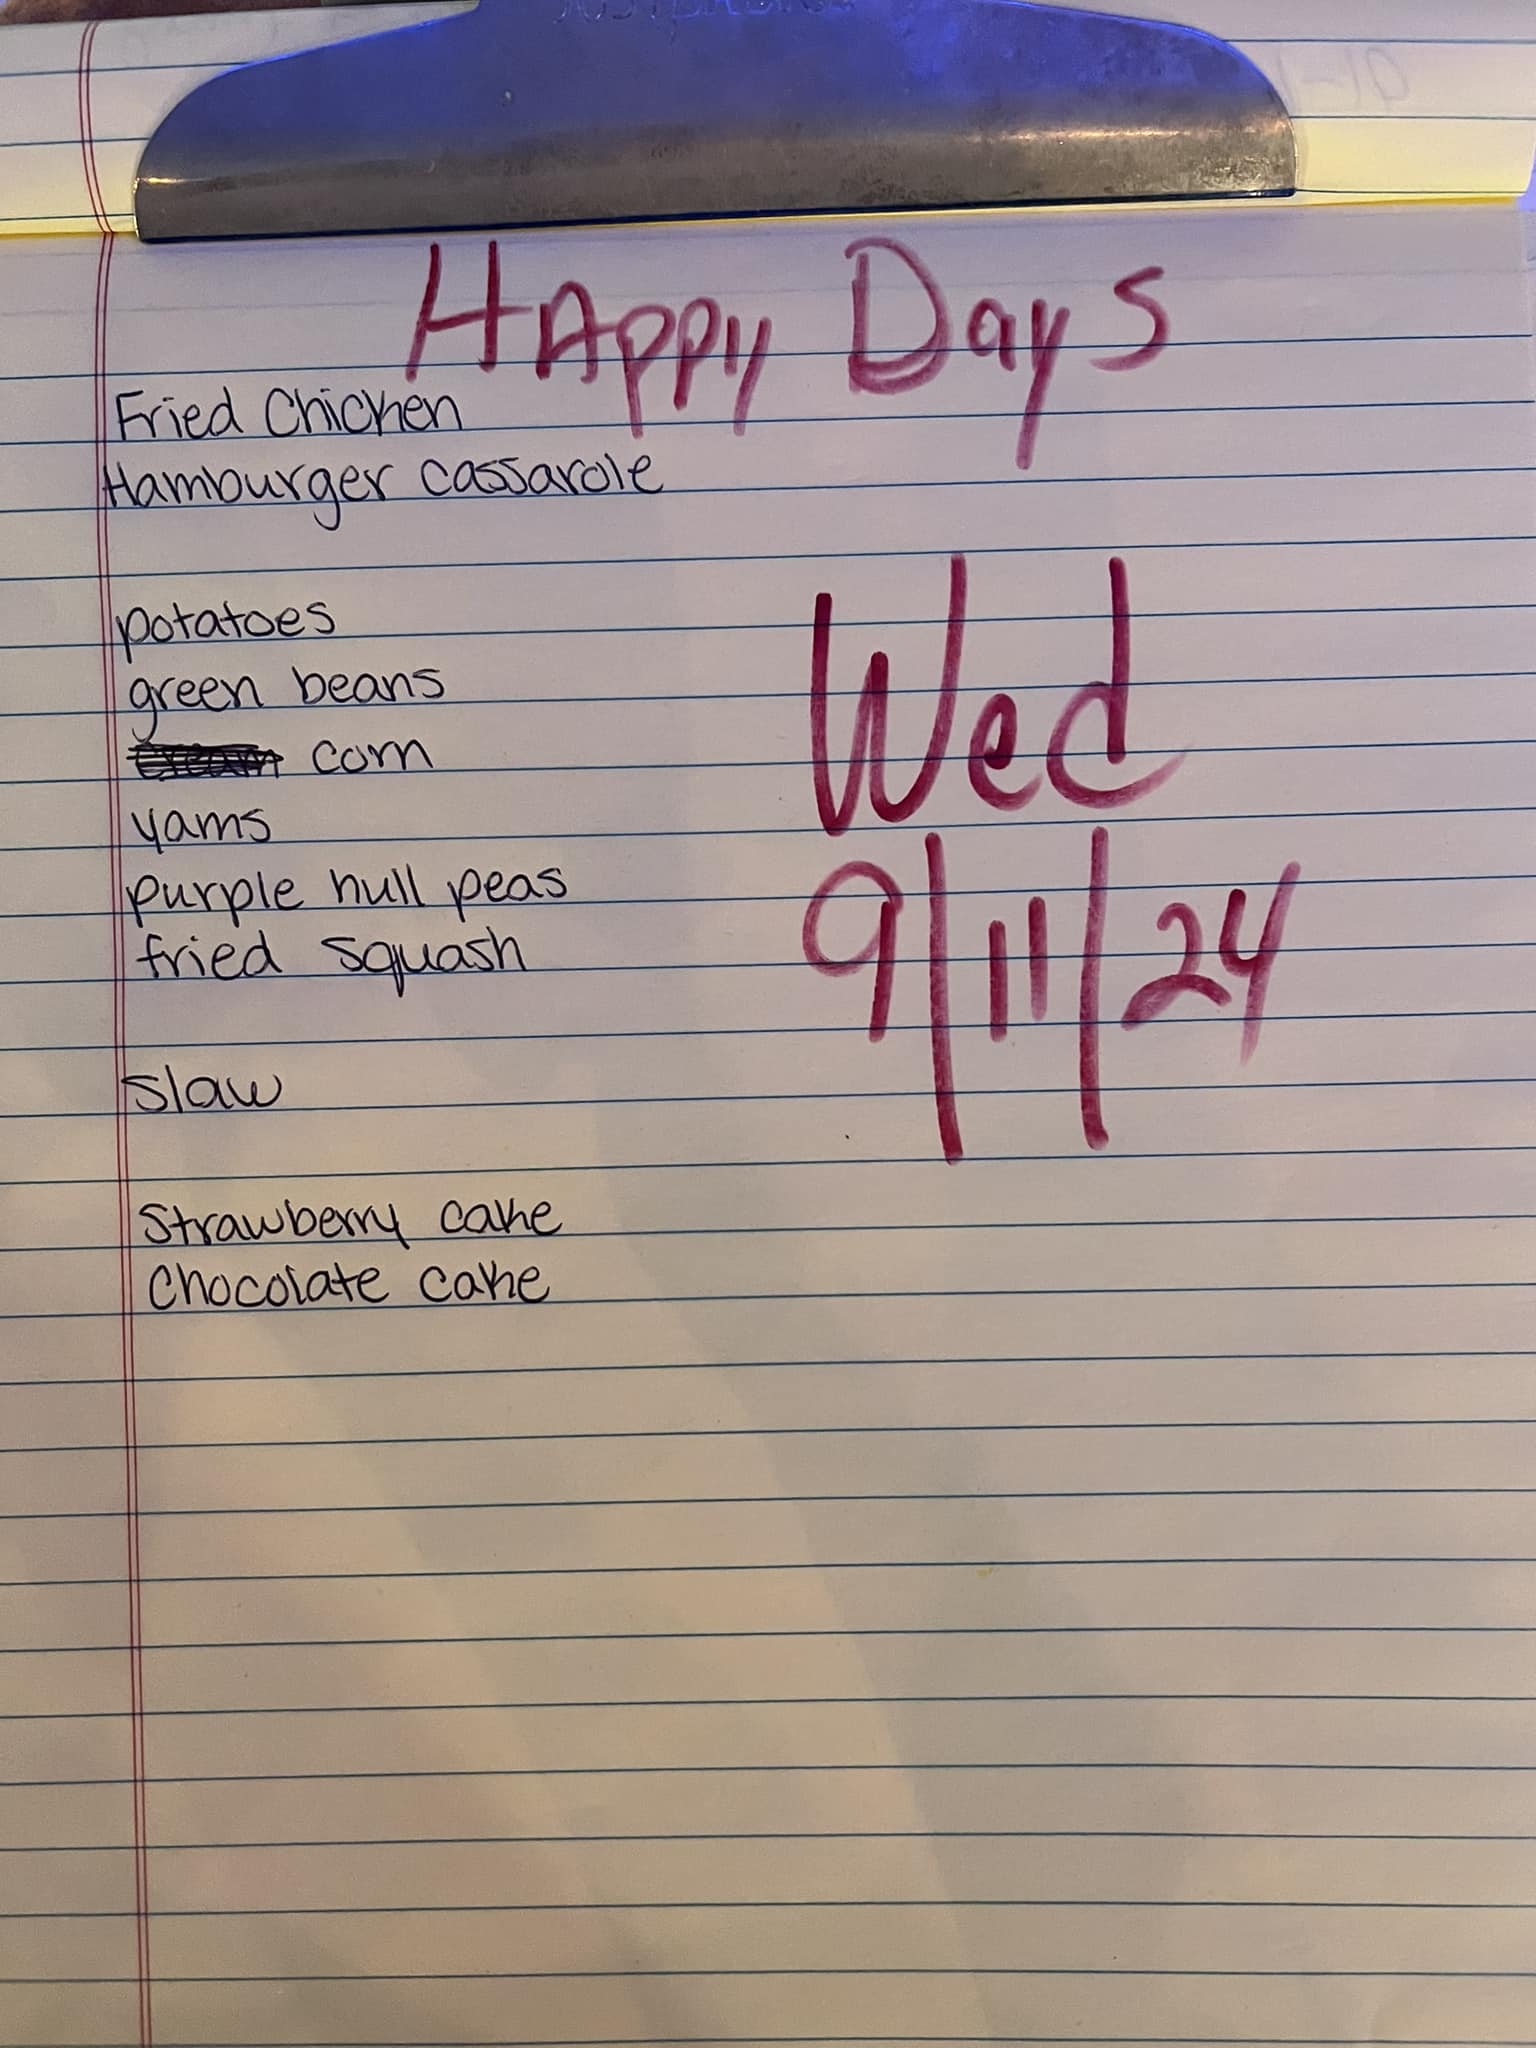 HAppy Days
Fried Chicken
Hamburger cassarole
potatoes
green beans
cream corn
yams
purple hull peas
fried squash
slaw
Strawberry cake
Chocolate cake
Wed
9/11/24